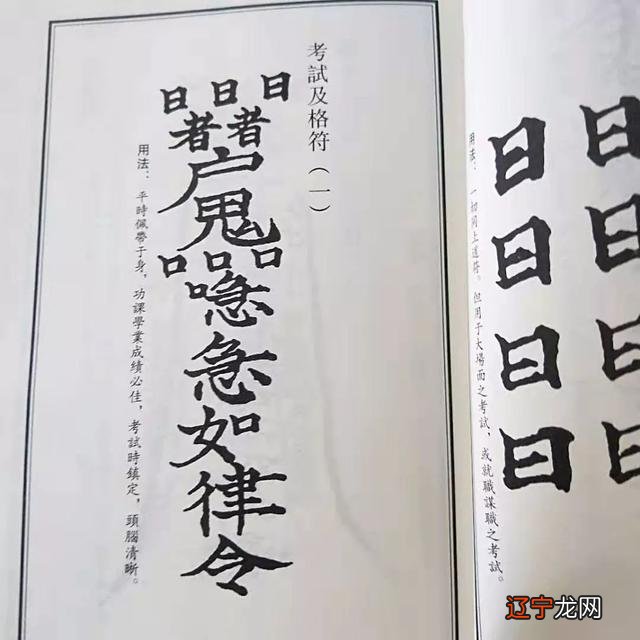 考試及格符（一）
日日日
者者
尸鬼
口口口
喼急如律令
用法：平時佩帶于身，功課學業成績必佳，考試時鎮定，頭腦清晰。
日日
日日
日日
日日
用法：一切同上道符。但用于大場面之考試，或就職謀職之考試。
辽宁龙网